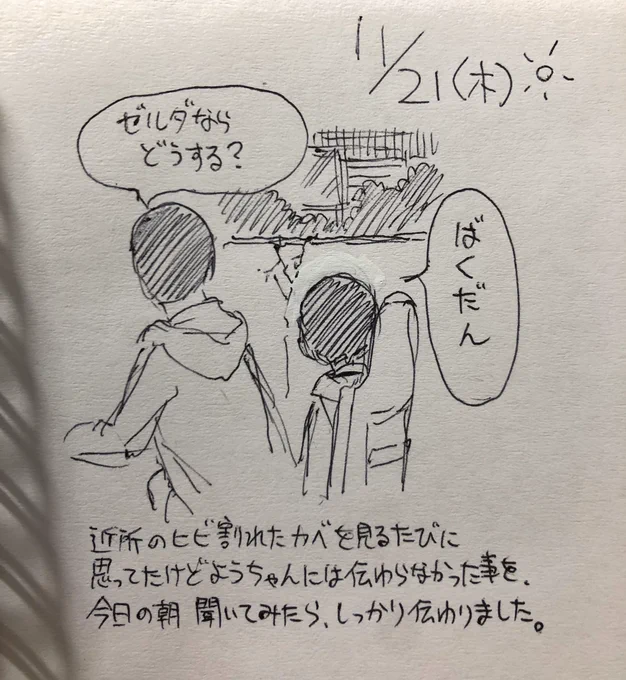 11/21(木)
ゼルダなら
どうする?
ばくだん
近所のヒビ割れたカベを見るたびに
思ってたけどようちゃんには伝わらなかった事を、
今日の朝 聞いてみたら、しっかり伝わりました。